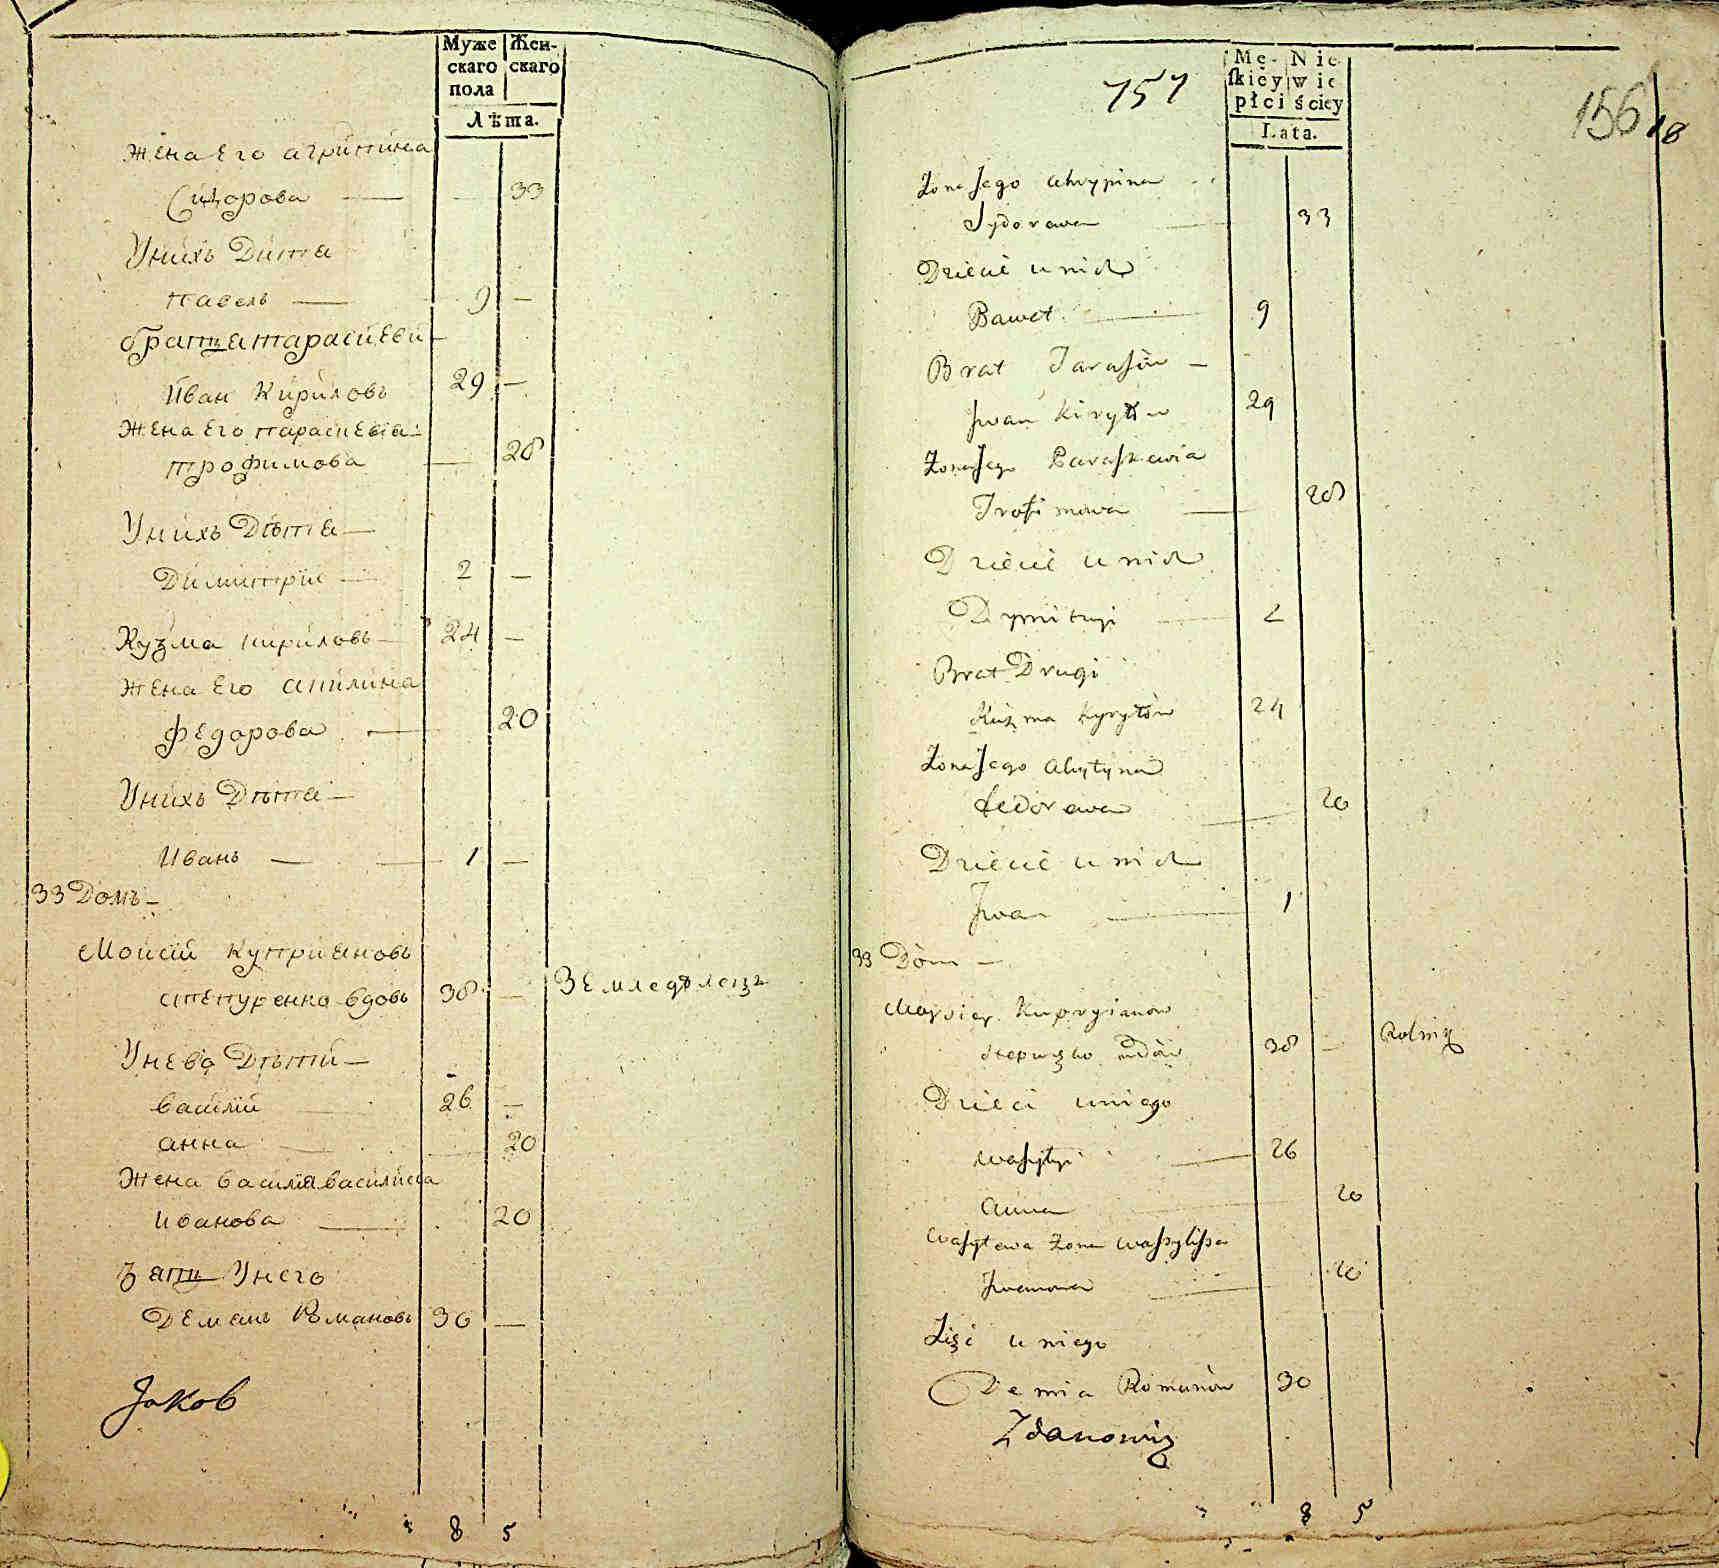 Муже
скаго
пола
Жен-
скаго
Лѣта.
Жена Его агрипина
Сидорова — — 33
Унихъ Дита
павелъ — 9 —
брат тарасиеви
Иван Кириловъ 29 —
Жена Его параскевіа
трофимова — 28
Унихъ Дѣта —
Димитрiи — 2 —
Кузма кириловъ — 24 —
Жена Его акилина
федорова — 20
Унихъ Дѣта —
Иванъ — — 1 —
33 Домъ —
Моисiй куприяновъ
степуренко вдовъ 38 — Земледѣлецъ
Унево Дѣти —
василiй 26 —
анна — 20
Жена василiя василиса
иванова — 20
зять Унего
Демянъ Романовъ 30 —
Jakob
8 5
757
Mę-
skiey
płci
Nie
wie
ściey
Lata.
156
18
Żona Jego ahrypina
Sydorowa 33
Dziecie unich
Paweł 9
Brat Tarasów —
Jwan Kiryłow 29
Żona Jego Paraskewia
Trofimowa — 28
Dziecie unich
Dymitryi 2
Brat Drugi
Kuzma Kyryłów 24
Żona Jego akylyna
fedorowa — 20
Dziecie unich
Jwan — 1
33 Dom —
Moysiey Kupryianow
wdów 38 — Rolnik
Dzieci uniego
wasyłyi — 26
anna 20
wasyłowa Żona wassylissa
Jwanowa 20
Zięć uniego
Demia Romanów 30
Zdanowicz
8 5